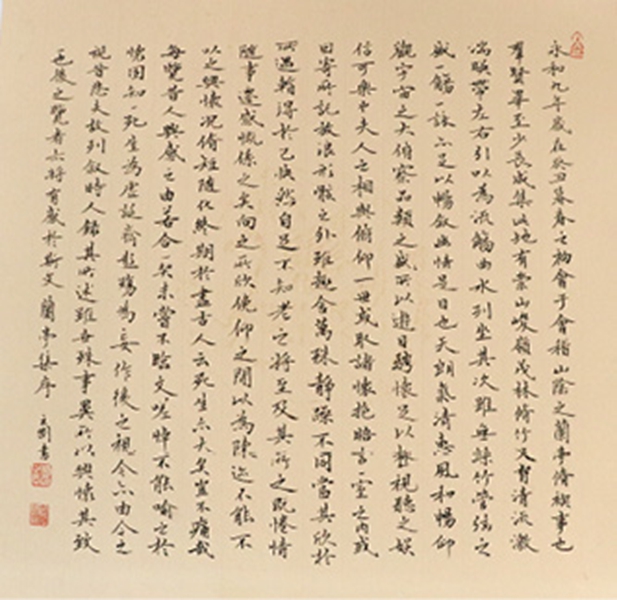 永和九年歲在癸丑暮春之初會于會稽山陰之蘭亭脩稧事也
羣賢畢至少長咸集此地有崇山峻嶺茂林脩竹又有清流激
湍暎帶左右引以為流觴曲水列坐其次雖無絲竹管弦之
盛一觴一詠亦足以暢敘幽情是日也天朗氣清惠風和暢仰
觀宇宙之大俯察品類之盛所以遊目騁懷足以極視聽之娛
信可樂也夫人之相與俯仰一世或取諸懷抱晤言一室之內或
因寄所託放浪形骸之外雖趣舍萬殊靜躁不同當其欣於
所遇輙得於己怏然自足不知老之將至及其所之既惓情
隨事遷感慨係之矣向之所欣俛仰之閒以為陳迹不能不
以之興懷況脩短隨化終期於盡古人云死生亦大矣豈不痛哉
每覽昔人興感之由若合一契未嘗不臨文嗟悼不能喻之於
懷固知一死生為虛誕齊彭殤為妄作後之視今亦由今之
視昔悲夫故列敘時人錄其所述雖世殊事異所以興懷其致
一也後之覽者亦將有感於斯文 蘭亭集序
書